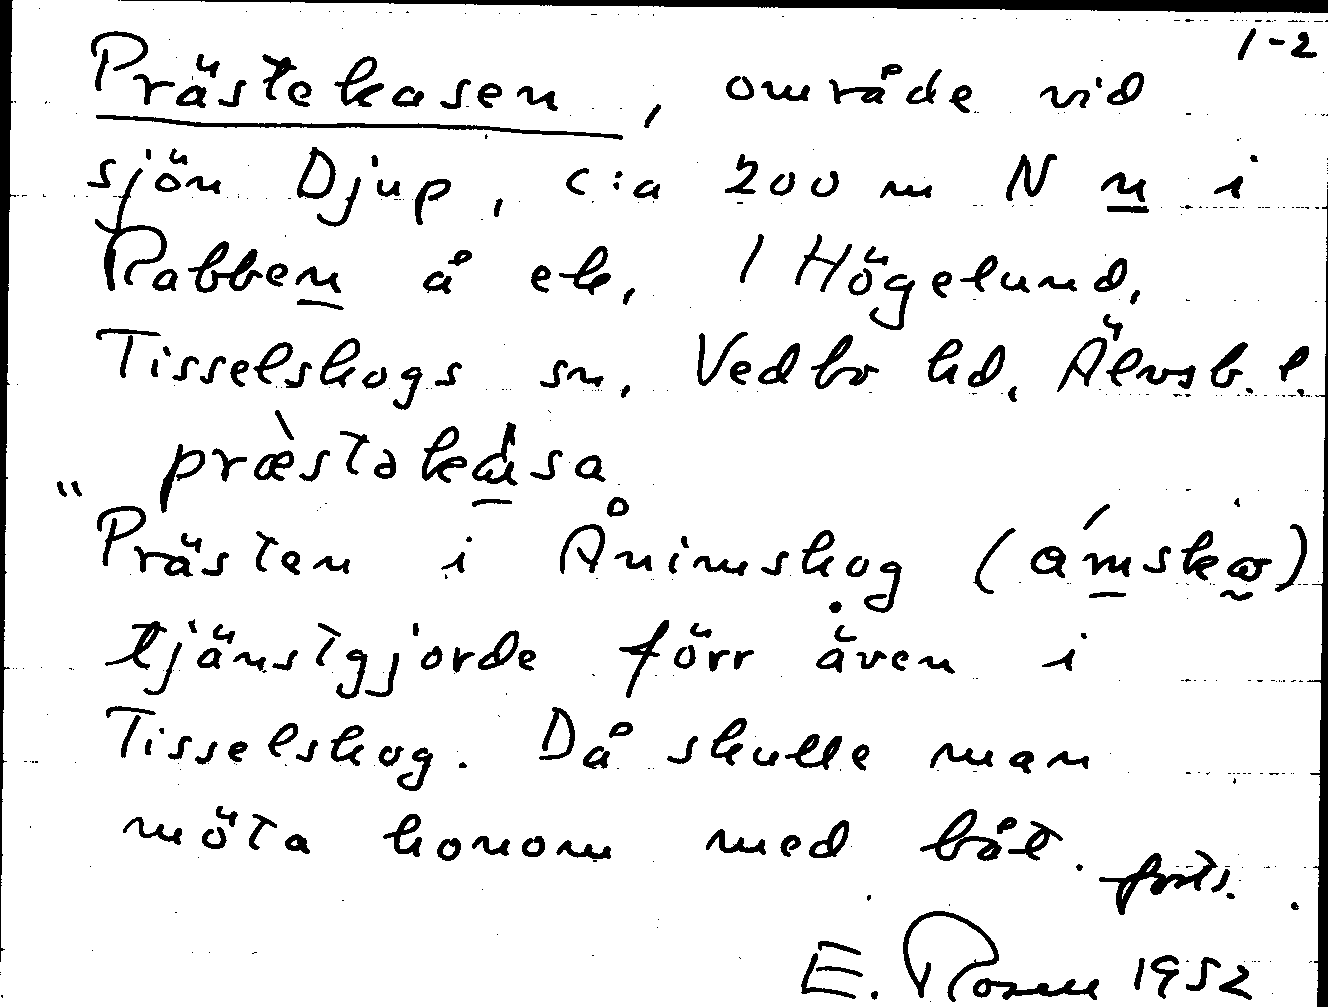 1-2
Prästekasen, område vid
sjön Djup, c:a 200 m N n i
Rabben å ek. 1 Högelund,
Tisselskogs sn, Vedbo hd, Älvsb. l.
præ̀stəkása
"Prästen i Ånimskog (ámskω)
tjänstgjorde förr även i
Tisselskog. Då skulle man
möta honom med båt. forts.
E. Rosell 1952